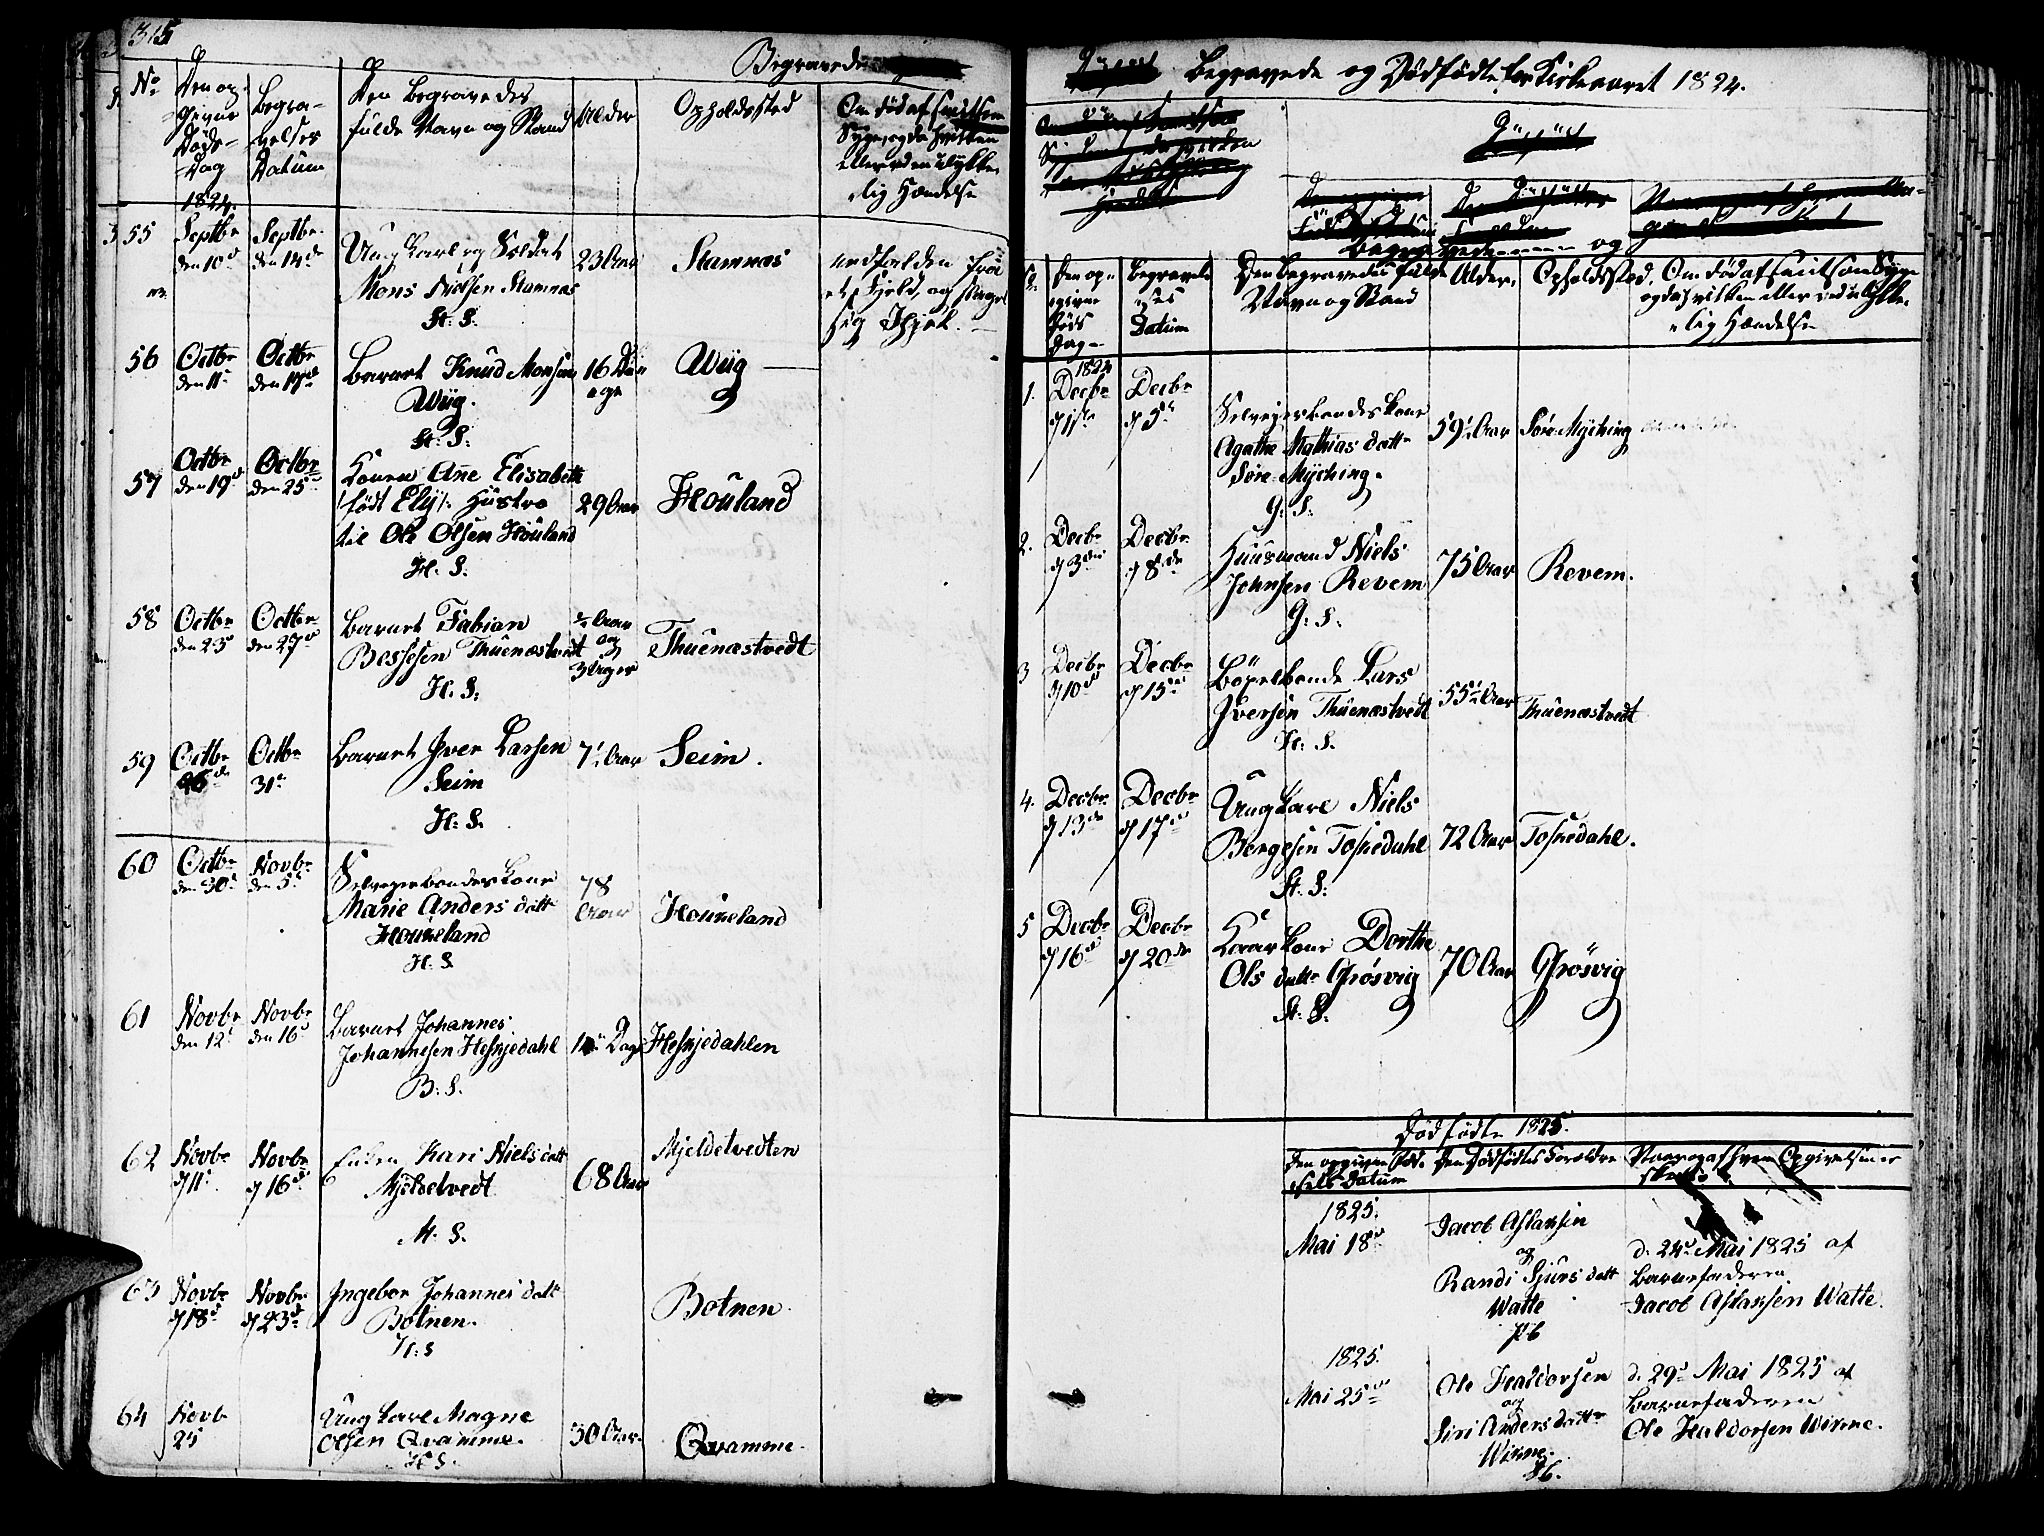 315
Begravede
No
Den op-
givne
Døds-
Dag
1824.
Begra-
velses
Datum
Den Begravedes
fulde Navn og Stand
Alder
Opholdssted
Om død af smitsom
Sygdom
eller ved en ulykke-
lig Hændelse
55
Septbr
den 10de
Septbr.
den 14de
Ungkarl og Soldat
Mons Nielsen Stamnæs
H. S.
23 Aar
Stamnæs
nedfalden fra
et Fjeld, og slaget
sig ihjel.
56
Octbr
den 11te
Octbr
den 17de
Barnet Knud Monsen
Wiig.
H. S.
16 Da-
age
Wiig
57
Octbr
den 19de
Octbr
den 25de
Konen Ane Elisabeth
født Ely Hustro
til Ole Olsen Houland
H. S.
29 Aar
Houland
58
Octbr
den 23de
Octbr
den 27de
Barnet Fabian
Bessesen Thuenæstvedt
H. S.
½ Aar
og
3 Uger
Thuenæstvedt
59
Octbr
26de
Octbr
31te
Barnet Iver Larsen
Seim
H. S.
7½ Aar
Seim.
60
Octbr
den 30te
Novbr
den 5te
Selveierbondeskone
Marie Andersdatt
Houkeland
H. S.
78
Aar
Houkeland
61
Novbr
den 12te
Novbr
den 16de
Barnet Johannes
Johannesen Hesjedahl
B. S.
Dage
Hesjedahlen
62
Novbr
d 11te
Novbr
d 16de
Enken Kari Nielsdatt
Mjeldetvedt
M. S.
68 Aar
Mjeldetvedten
63
Novbr
d 18de
Novbr
d 23de
Ingebor Johannesdatt
Botnen.
H. S
Botnen.
64
Novb
25
Ungkarl Magne
Olsen Qvamme.
H S.
30 Aar.
Qvamme.
Begravede og Dødfødte for Kirkeaaret 1824.
Begravede og
Den op-
givne
Døds
Dag
Begravel-
ses
Datum
Den Begravedes fulde
Navn og Stand
Alder.
Opholdssted.
Om død af smitsom Syge
eller ved ulykke-
lig Hændelse
1824
1.
Decbr
d 1ste
Decbr
d 5te
Selveierbondeskone
Agathe Mathiasdatt
Søre Myching.
G. S.
59½ Aar
Søre Myching
2.
Decbr
d 3die
Decbr
d 8de
Huusmand Niels
Johnsen Revem
G. S.
75 Aar
Revem.
3
Decbr
d 10de
Decbr
d 15de
Bøxelbonde Lars
Iversen Thuenæstvedt
H. S.
55½ Aar
Thuenæstvedt
4.
Decbr
d 13de
Decbr
d 17de
Ungkarl Niels
Børgesen Toskedahl
St. S.
72 Aar
Toskedahl.
5
Decbr
d 16de
Decbr
d 20de
Kaarkone Dorthe
Olsdatt Grøsvig
St. S.
70 Aar
Grøsvig
Dødfødte 1825.
Den opgivne Føde-
sels Datum
Den Dødfødtes Forældre
Naar og af hvem Opgivelsen er
skeet.
1825.
Mai 18de
Jacob Aslaksen
og
Randi Sjursdatt
Watle
d. 24de Mai 1825 af
Barnefaderen
Jacob Aslaksen Watle.
1825.
Mai 25de
Ole Haldorsen
og
Siri Andersdatt
Wirme.
d. 29de Mai 1825 af
Barnefaderen
Ole Haldorsen Wirme.